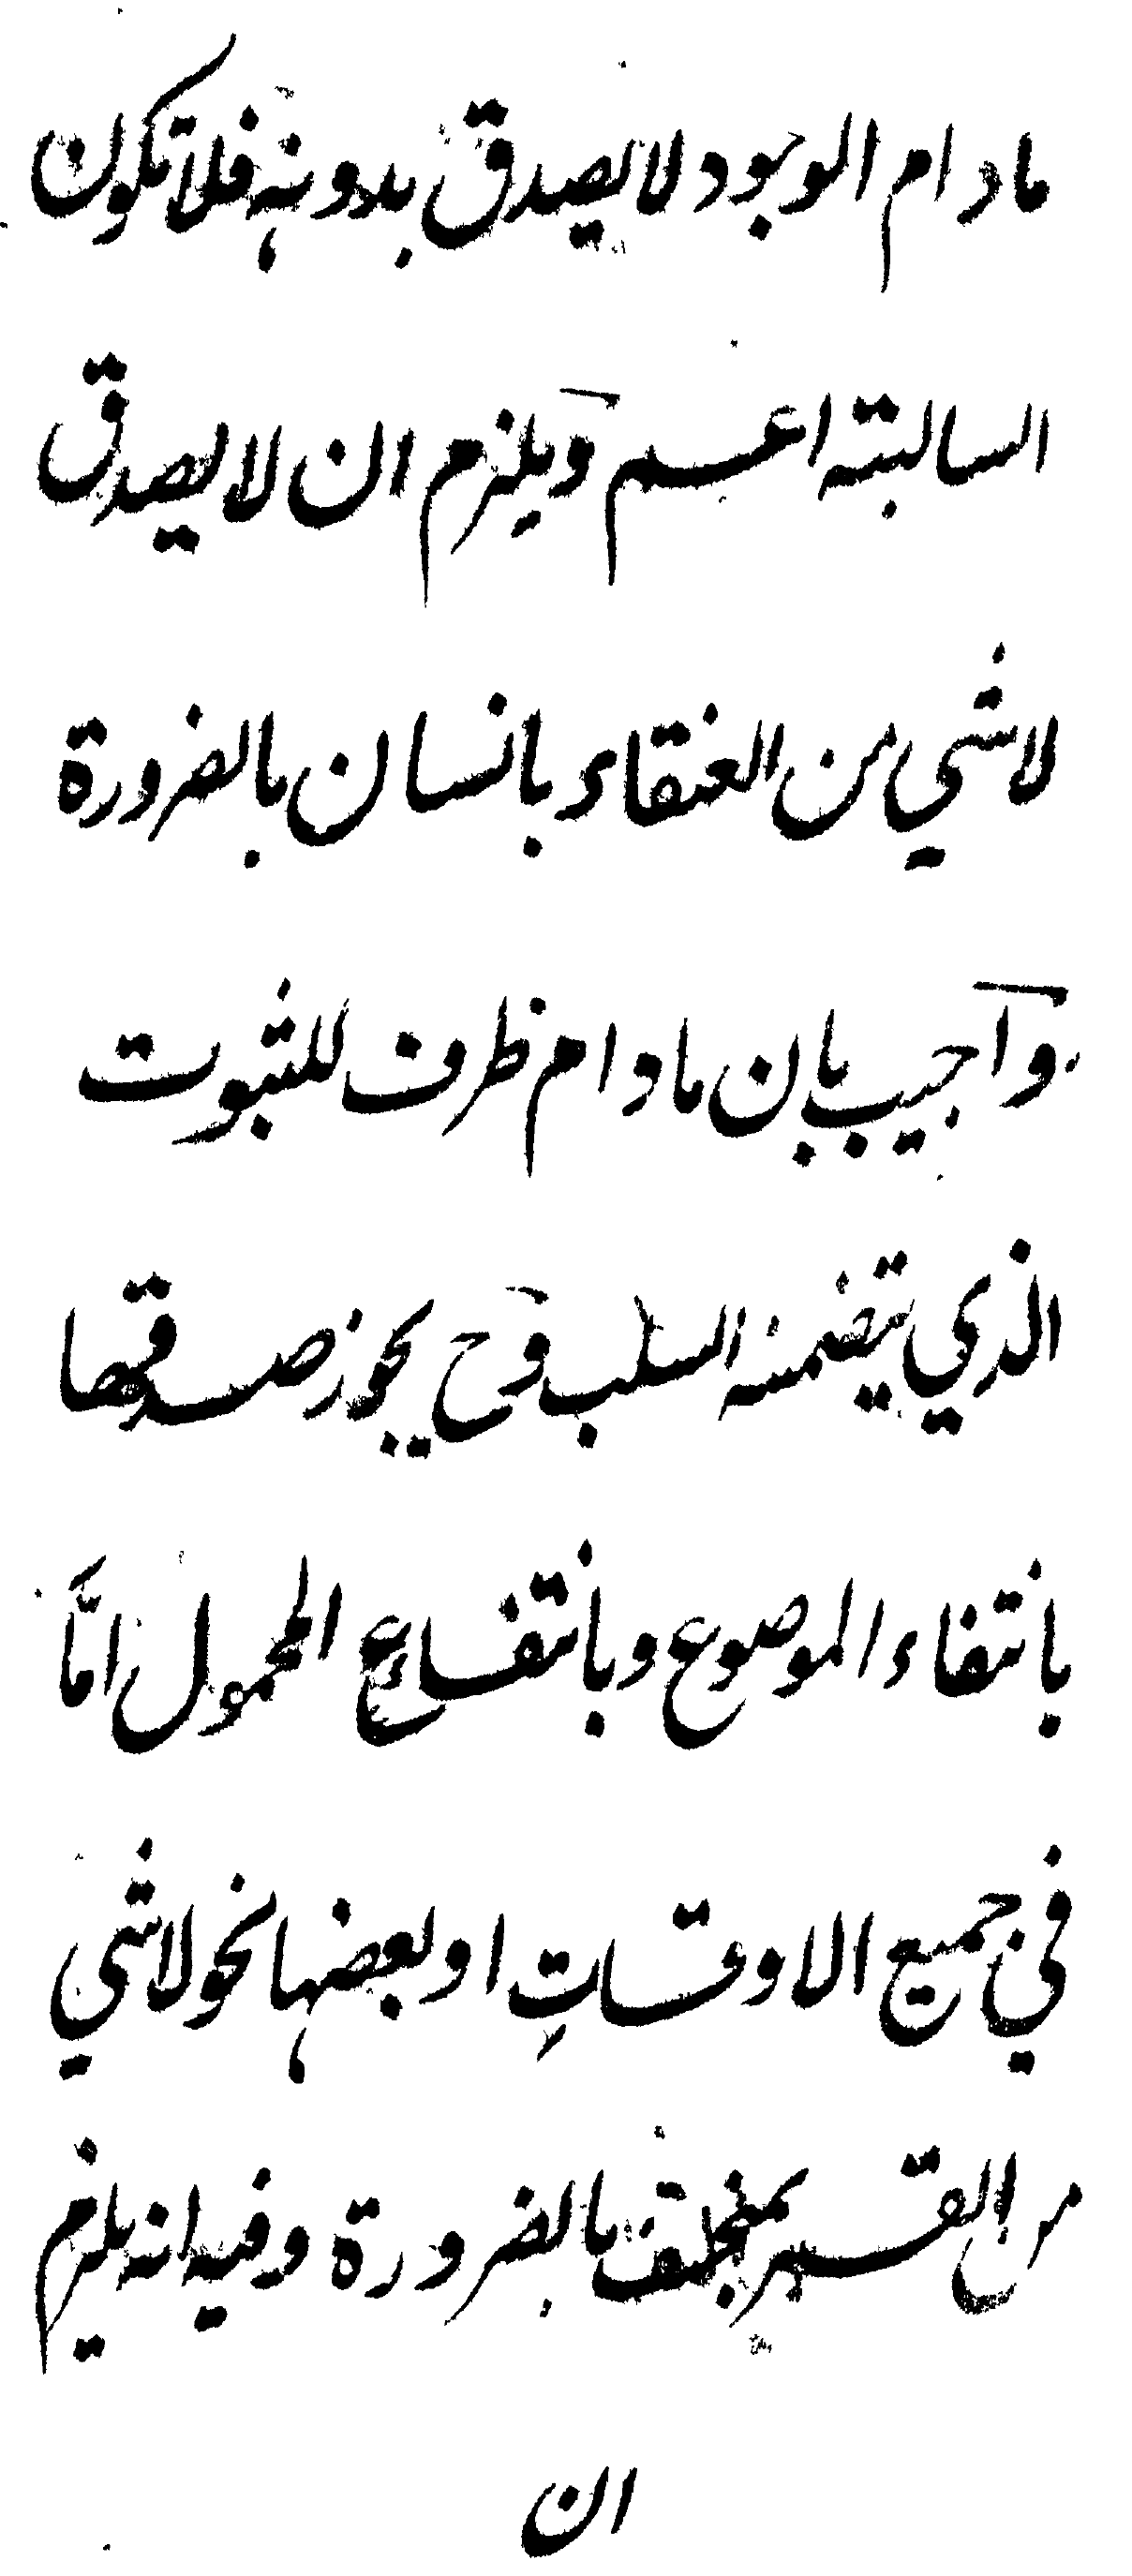 مادام الوجود لا يصدق بدونه فلا تكون
السالبته اعم ويلزم ان لا يصدق
لاشي من العنقاء بانسان بالضرورة
وآجيب بان مادام ظرف للثبوت
الذي يتضمنه السلب وح يجوز صدقها
بانتفاء الموضوع وبانتفاع المحمول امّا
في جميع الاوقاتِ او بعضها نحو لاشي
من القمر بمنخسف بالضرورة وفيه انه يلزم
ان